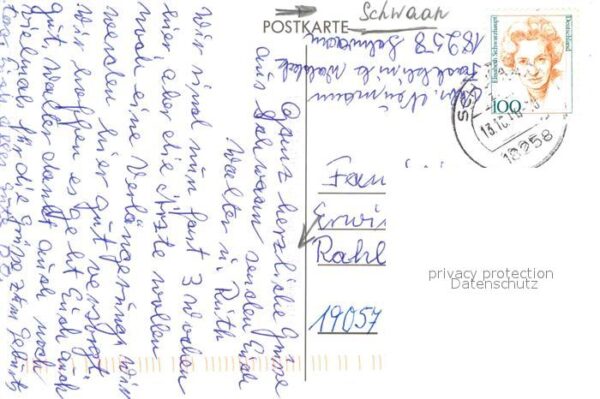 Ganz herzliche Grüße
aus Schwaan senden Euch
Walter u. Ruth
Wir sind nun fast 3 Wochen
hier aber die Ärzte wollen
noch eine Verlängerung, wir
werden hier gut versorgt.
Wir hoffen es geht Euch auch
gut, Walter dankt auch noch
vielmals für die Grüße zum Geburts
POSTKARTE
Schwaan
Neumann
18258 Schwaan
Elisabeth Schwarzhaupt
Deutschland
100
18258
Fam
Erwi
Rahl
19057
privacy protection
Datenschutz